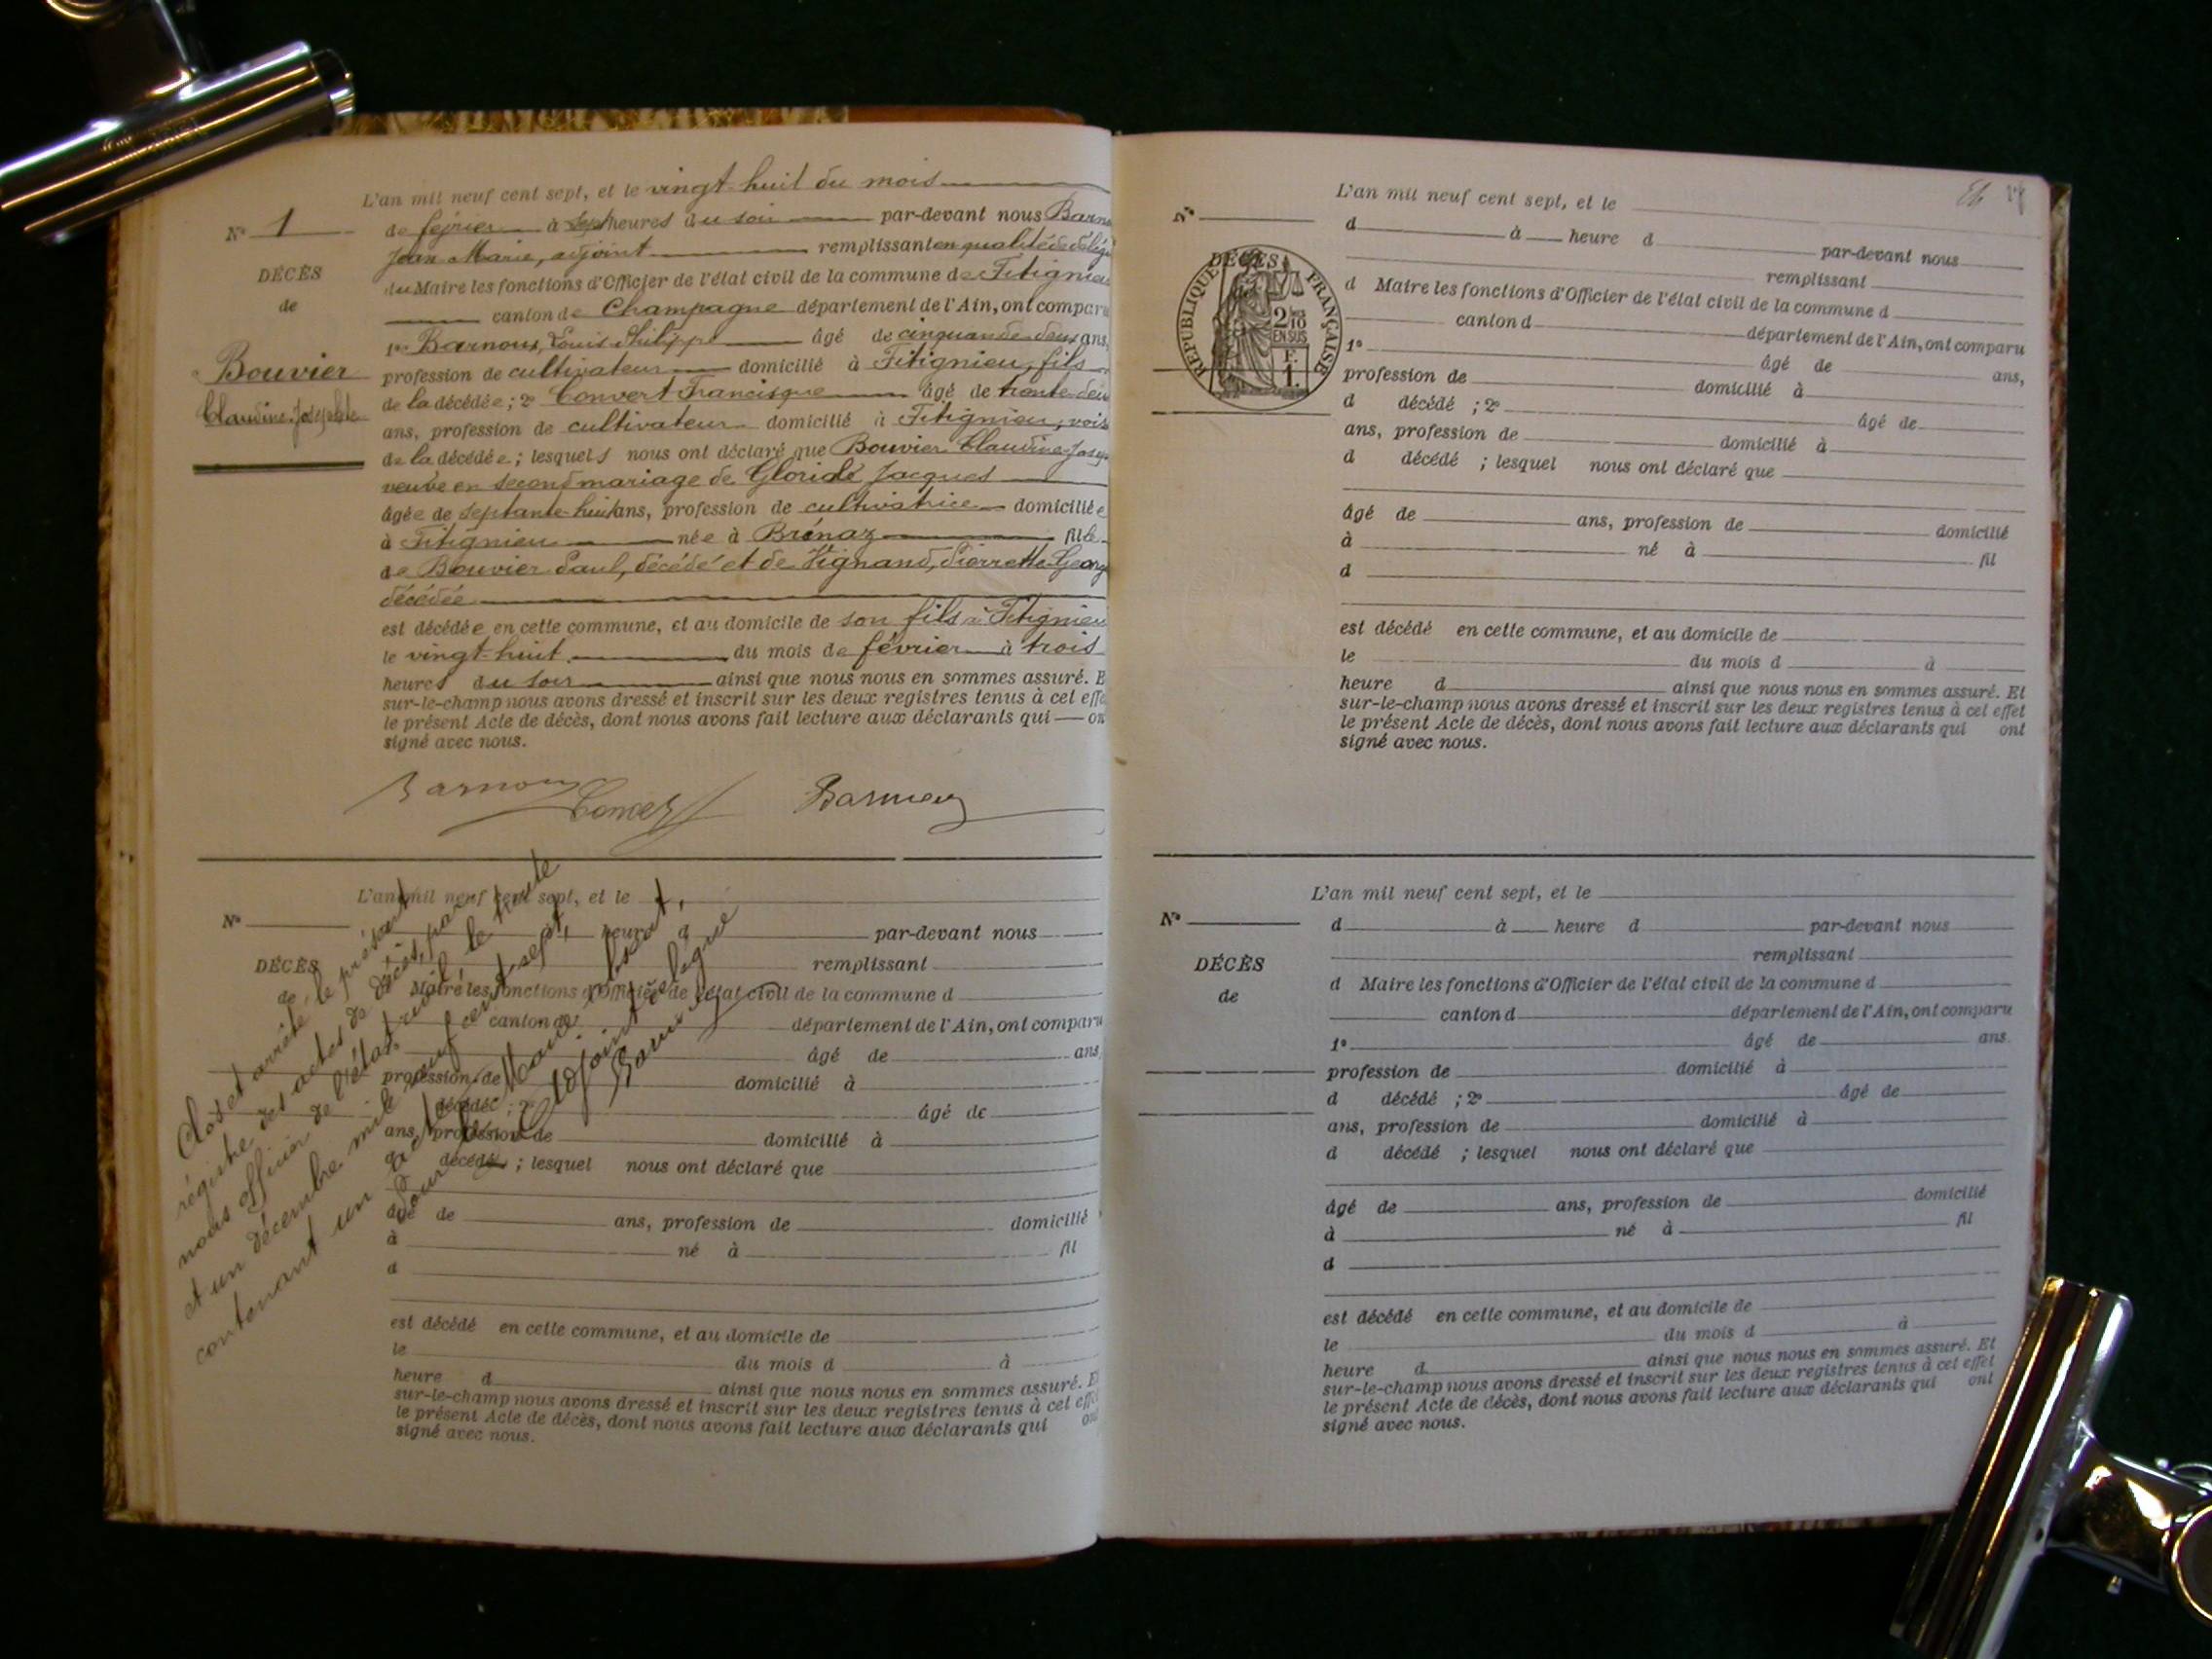 L'an mil neuf cent sept, et le vingt-huit du mois
N° 1
de février à sept heures du soir par-devant nous
Jean Marie, adjoint remplissant en qualité de
DÉCÈS
du Maire les fonctions d'Officier de l'état civil de la commune de Fitignieu
de
canton de Champagne département de l'Ain, ont comparu
1° Barnoux, Louis Philippe âgé de cinquante-deux ans,
Bouvier
profession de cultivateur domicilié à Fitignieu, fils
Claudine-Josephte
de la décédée ; 2° Convert Francisque âgé de trente-deux
ans, profession de cultivateur domicilié à Fitignieu, voisin
de la décédée ; lesquels nous ont déclaré que Bouvier Claudine-
veuve en second mariage de Jacques
âgée de septante-huit ans, profession de cultivatrice domiciliée
à Fitignieu née à Brénaz fille
de Bouvier Paul, décédé et de Vignand, Pierrette
décédée
est décédée en cette commune, et au domicile de son fils à Fitignieu
le vingt-huit du mois de février à trois
heures du soir ainsi que nous nous en sommes assuré. E
sur-le-champ nous avons dressé et inscrit sur les deux registres tenus à cet effe
le présent Acte de décès, dont nous avons fait lecture aux déclarants qui on
signé avec nous.
Barnoux
Convert
L'an mil neuf cent sept, et le
N°
à heure d par-devant nous
DÉCÈS
remplissant
de
Maire les fonctions d'Officier de l'état civil de la commune d
canton d département de l'Ain, ont comparu
âgé de ans
profession de domicilié à
décédé ; 2° âgé de
ans, profession de domicilié à
d décédé ; lesquel nous ont déclaré que
âgé de ans, profession de domicilié
à né à fil
d
est décédé en cette commune, et au domicile de
le du mois d à
heure d ainsi que nous nous en sommes assuré. E
sur-le-champ nous avons dressé et inscrit sur les deux registres tenus à cet effe
le présent Acte de décès, dont nous avons fait lecture aux déclarants qui on
signé avec nous.
Clos et arrêté le présent
régistre des actes de décès, par
nous officier de l'état civil le trente
et un décembre mil neuf cent sept,
contenant un acte.
Pour le Maire absent,
L'adjoint délégué
L'an mil neuf cent sept, et le
N°
d à heure d par-devant nous
DÉCÈS
RÉPUBLIQUE FRANÇAISE
2/10
EN SUS
F.
1.
remplissant
d Maire les fonctions d'Officier de l'état civil de la commune d
canton d département de l'Ain, ont comparu
1° âgé de ans,
profession de domicilié à
d décédé ; 2° âgé de
ans, profession de domicilié à
d décédé ; lesquel nous ont déclaré que
âgé de ans, profession de domicilié
à né à fil
d
est décédé en cette commune, et au domicile de
le du mois d à
heure d ainsi que nous nous en sommes assuré. Et
sur-le-champ nous avons dressé et inscrit sur les deux registres tenus à cet effet
le présent Acte de décès, dont nous avons fait lecture aux déclarants qui ont
signé avec nous.
L'an mil neuf cent sept, et le
N°
d à heure d par-devant nous
DÉCÈS
remplissant
de
d Maire les fonctions d'Officier de l'état civil de la commune d
canton d département de l'Ain, ont comparu
1° âgé de ans.
profession de domicilié à
d décédé ; 2° âgé de
ans, profession de domicilié à
d décédé ; lesquel nous ont déclaré que
âgé de ans, profession de domicilié
à né à fil
d
est décédé en cette commune, et au domicile de
le du mois d à
heure d ainsi que nous nous en sommes assuré. Et
sur-le-champ nous avons dressé et inscrit sur les deux registres tenus à cet effet
le présent Acte de décès, dont nous avons fait lecture aux déclarants qui ont
signé avec nous.